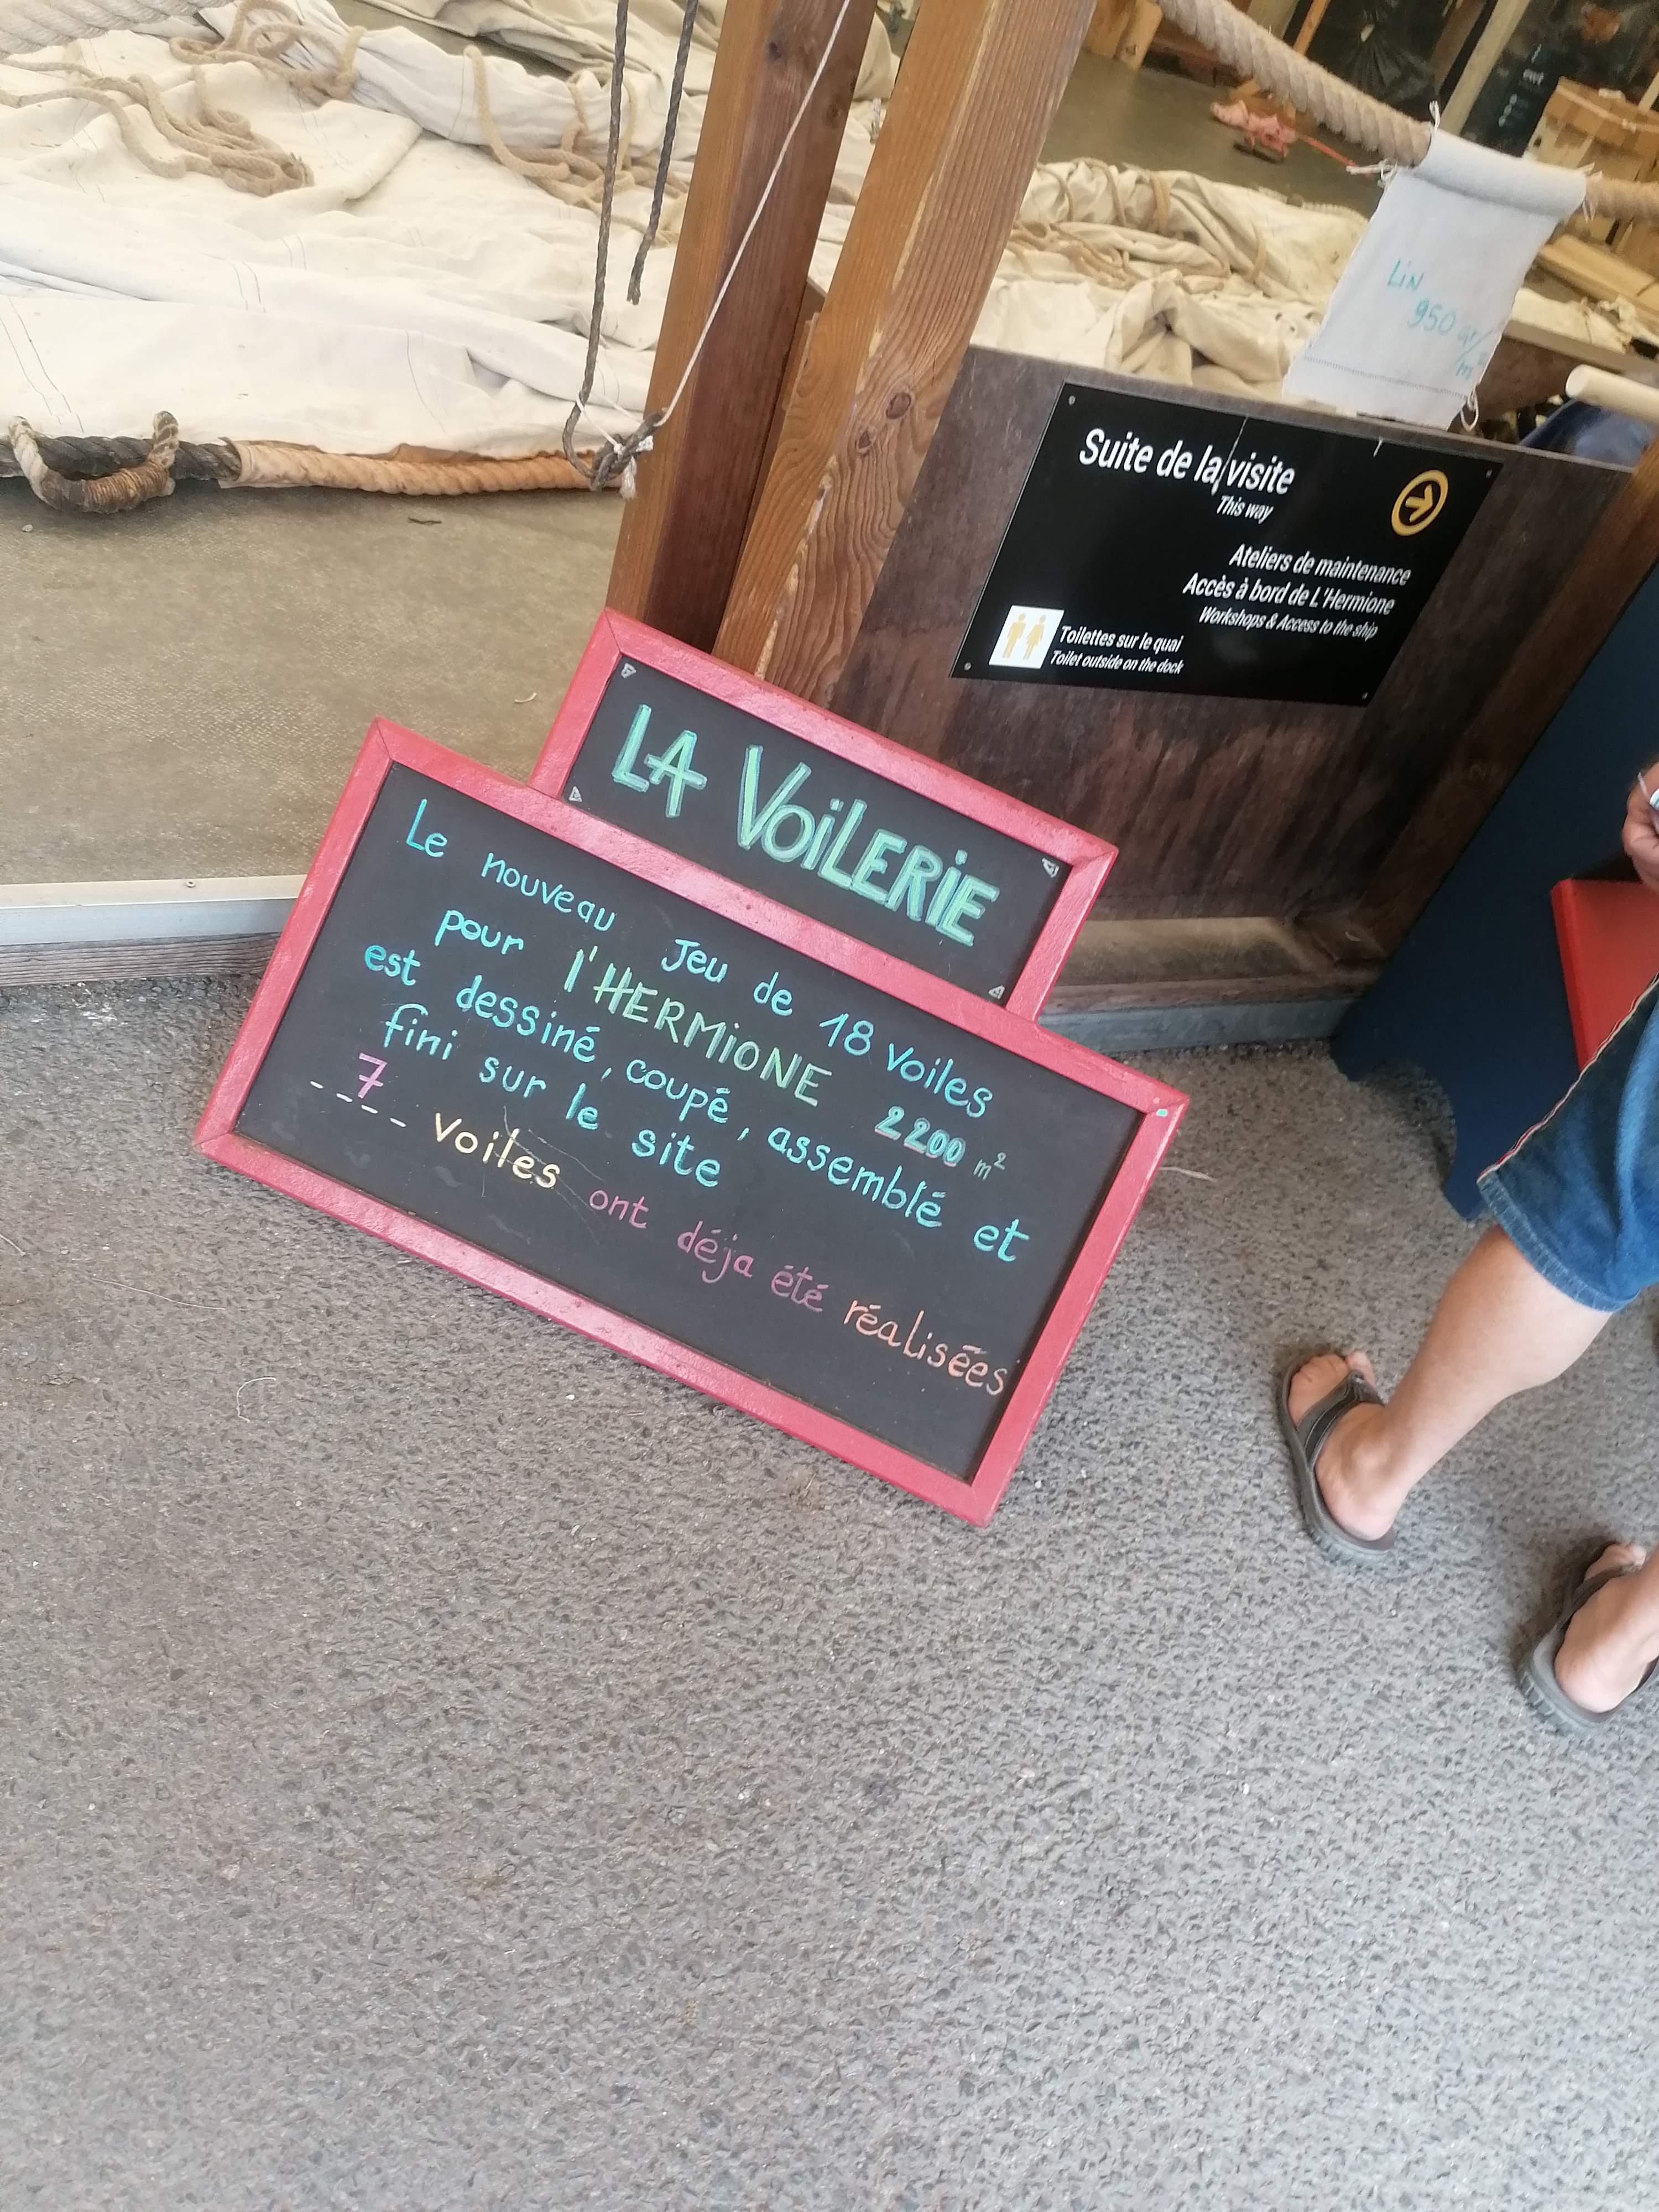 LIN
950 gr/
m²
Suite de la visite
This way
Ateliers de maintenance
Accès à bord de L'Hermione
Workshops & Access to the ship
Toilettes sur le quai
Toilet outside on the dock
LA VOILERIE
Le nouveau Jeu de 18 voiles
pour l'HERMIONE 2200 m²
est dessiné, coupé, assemblé et
fini sur le site
7 voiles ont déja été réalisées